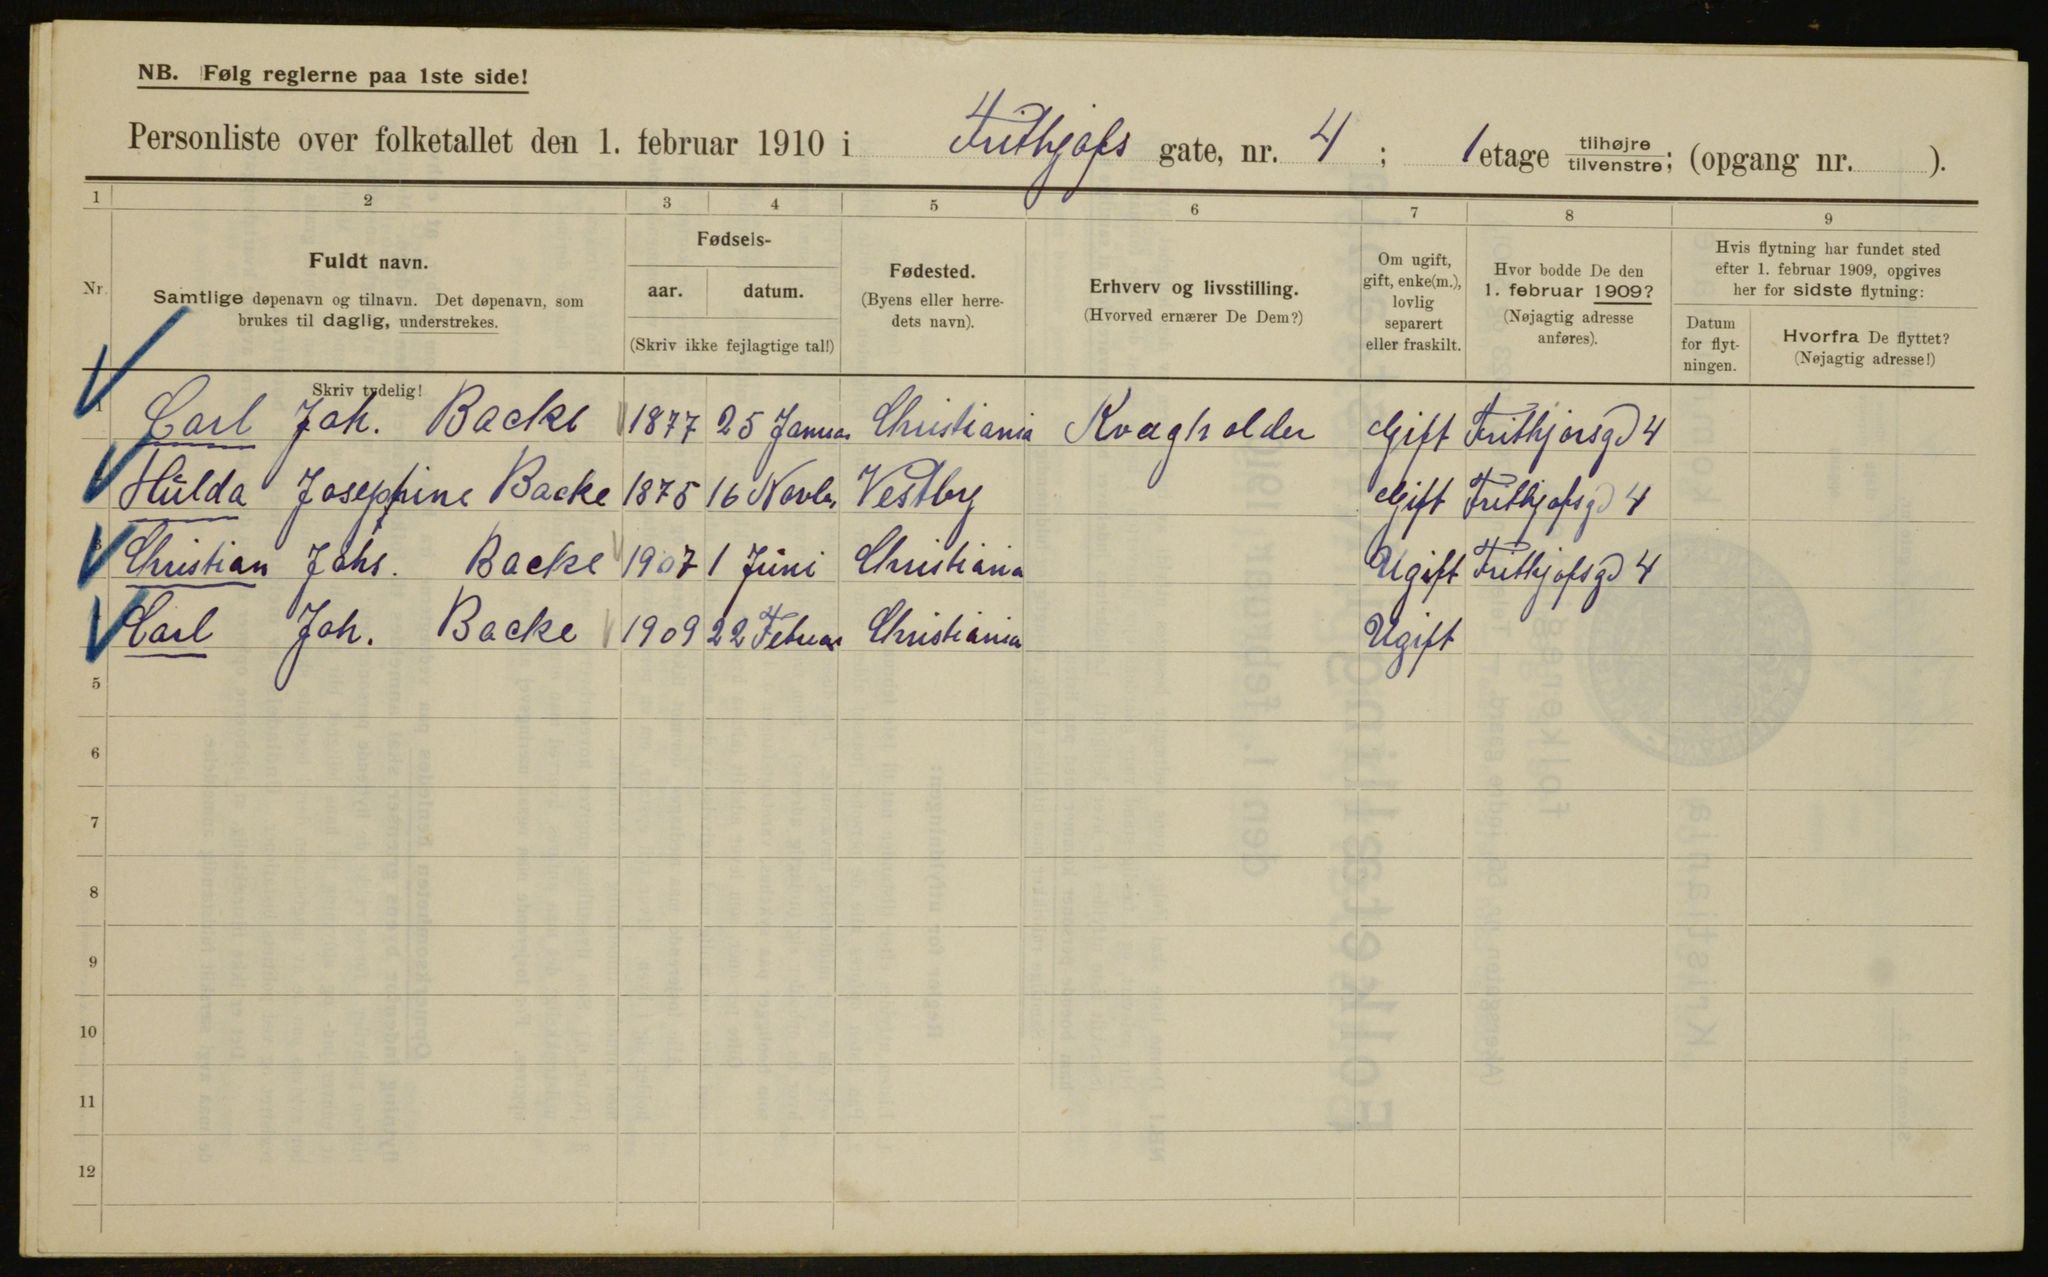 NB. Følg reglerne paa 1ste side!
Personliste over folketallet den 1. februar 1910 i Frithjofs gate, nr. 4 ; 1 etage tilhøjre tilvenstre; (opgang nr. ).
1 2 3 4 5 6 7 8 9
Nr. Fuldt navn. Samtlige døpenavn og tilnavn. Det døpenavn, som brukes til daglig, understrekes. Skriv tydelig!
Fødsels- aar. datum. (Skriv ikke fejlagtige tal!)
Fødested. (Byens eller herredets navn).
Erhverv og livsstilling. (Hvorved ernærer De Dem?)
Om ugift, gift, enke(m.), lovlig separert eller fraskilt.
Hvor bodde De den 1. februar 1909? (Nøjagtig adresse anføres).
Hvis flytning har fundet sted efter 1. februar 1909, opgives her for sidste flytning:
Datum for flytningen. Hvorfra De flyttet? (Nøjagtig adresse!)
1 Carl Joh. Backe 1877 25 Januar Christiania Kvægholder Gift Frithjorsgd 4
Hulda Josephine Backe 1875 16 Novbr Vestby Gift Frithjofsgd 4
3 Christian Johs. Backe 1907 1 Juni Christiania Ugift Frithjofsgd 4
Carl Joh. Backe 1909 22 Februar Christiania Ugift
5
6
7
8
9
10
11
12